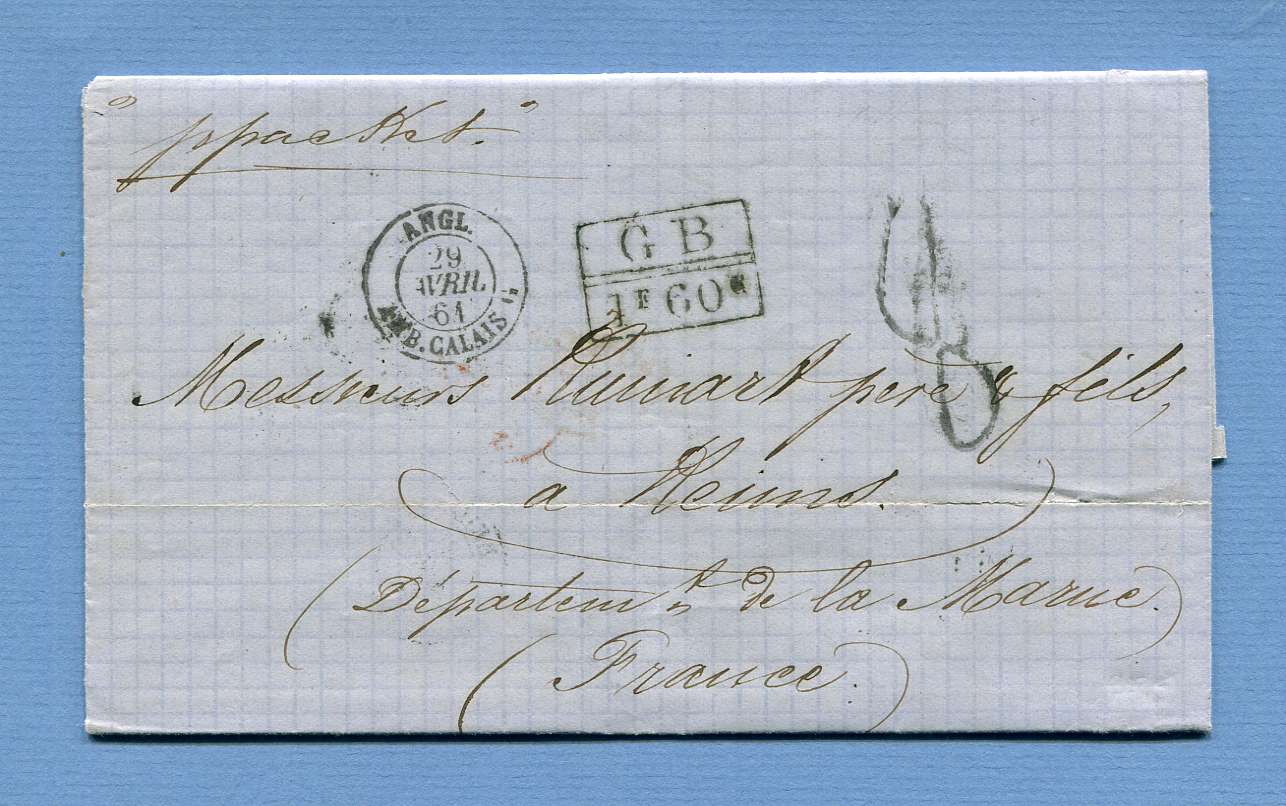 "p packet."
ANGL.
29
AVRIL
61
AMB. CALAIS
G B
1F 60c
8
Messieurs Ruinart père & fils,
a Reims.
(Départemt de la Marne.)
(France.)